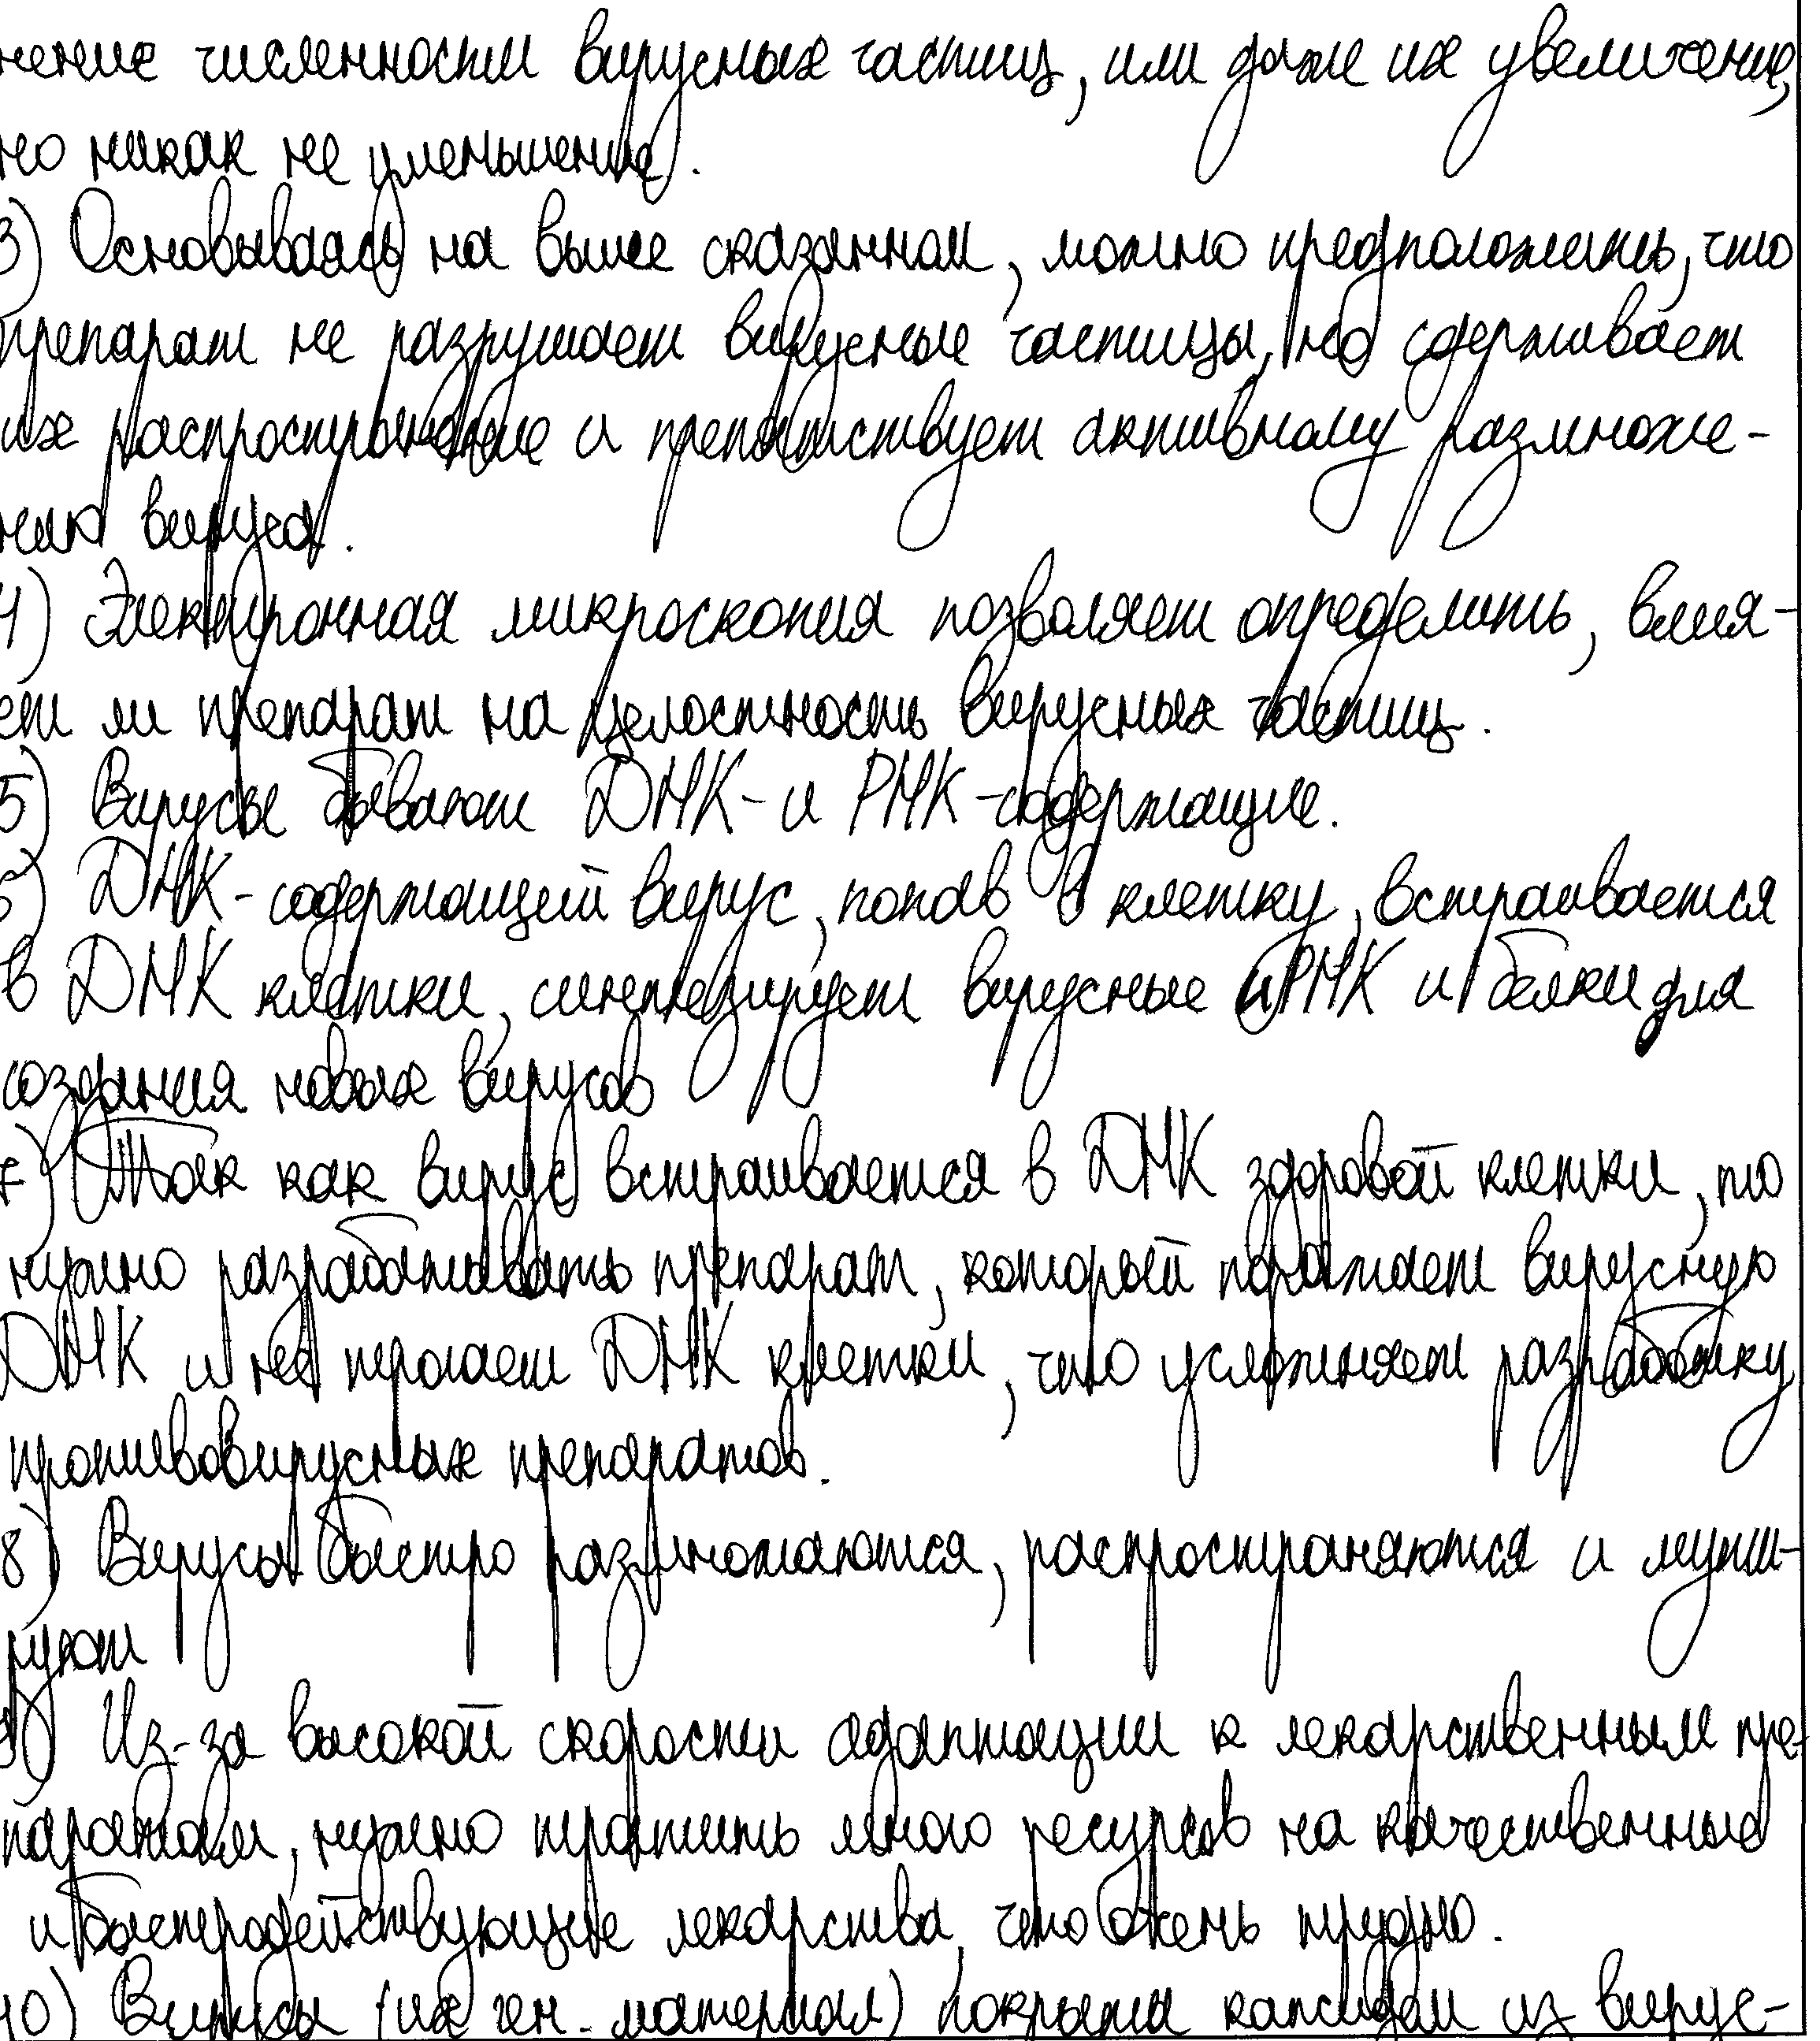 нение численности вирусных частиц, или даже их увеличение,
но никак не уменьшение.
3) Основываясь на выше сказанном, можно предположить, что
препарат не разрушает вирусные частицы, но сдерживает
их распространение и препятствует активному размноже-
нию вируса.
4) Электронная микроскопия позволяет определить, влия-
ет ли препарат на целостность вирусных частиц.
5) Вирусы бывают ДНК- и РНК-содержащие.
6) ДНК-содержащий вирус, попав в клетку, встраивается
в ДНК клетки, синтезирует вирусные иРНК и белки для
создания новых вирусов
7) Так как вирус встраивается в ДНК здоровой клетки, то
нужно разрабатывать препарат, который поражает вирусную
ДНК и не трогает ДНК клетки, что усложняет разработку
противовирусных препаратов.
8) Вирусы быстро размножаются, распространяются и мути-
руют
9) Из-за высокой скорости адаптации к лекарственным пре-
паратам, нужно тратить много ресурсов на качественные
и быстродействующие лекарства, что очень трудно.
10) Вирусы (их ген. материал) покрыты капсидом из вирус-